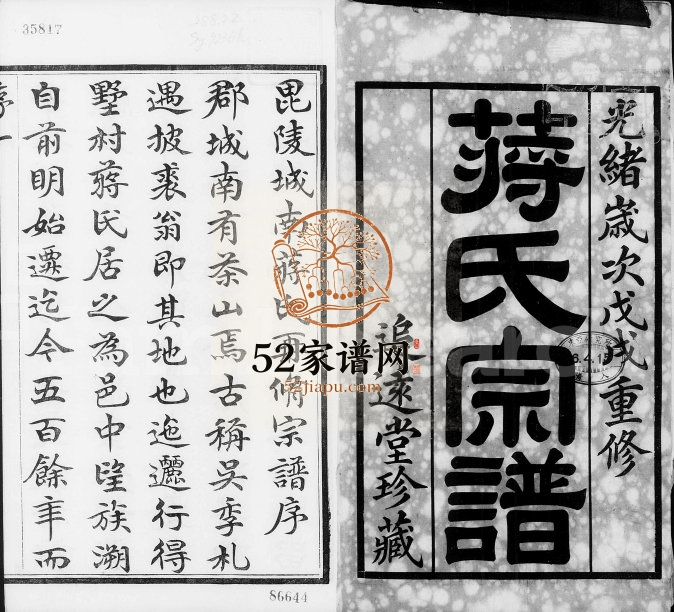 光緒歲次戊戌重修
蔣氏宗譜
追遠堂珍藏
35817
毘陵城南蔣氏重脩宗譜序
郡城南有茶山焉古稱吳季札
遇披裘翁即其地也迤邐行得
墅村蔣氏居之為邑中望族溯
自前明始遷迄今五百餘年而
序一
86644
52家谱网
52jiapu.com